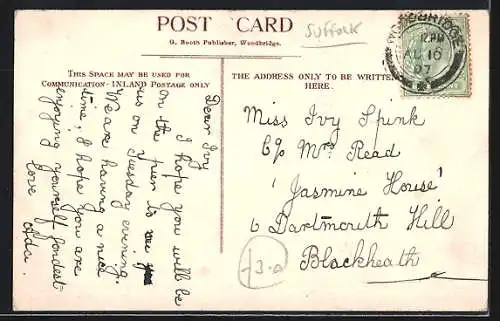 POST CARD
Suffolk
G. Booth Publisher, Woodbridge.
THIS SPACE MAY BE USED FOR
COMMUNICATION-INLAND POSTAGE ONLY
THE ADDRESS ONLY TO BE WRITTEN
HERE.
Dear Ivy
I hope you will be
on the pier to see
us on Tuesday evening.
We are having a nice
time, I hope you are
enjoying yourself fondest
love Ada.
Miss Ivy Spink
C/o Mrs Read
'Jasmine House'
6 Dartmouth Hill
Blackheath
3.0
WOODBRIDGE
12 PM
AU 16
07